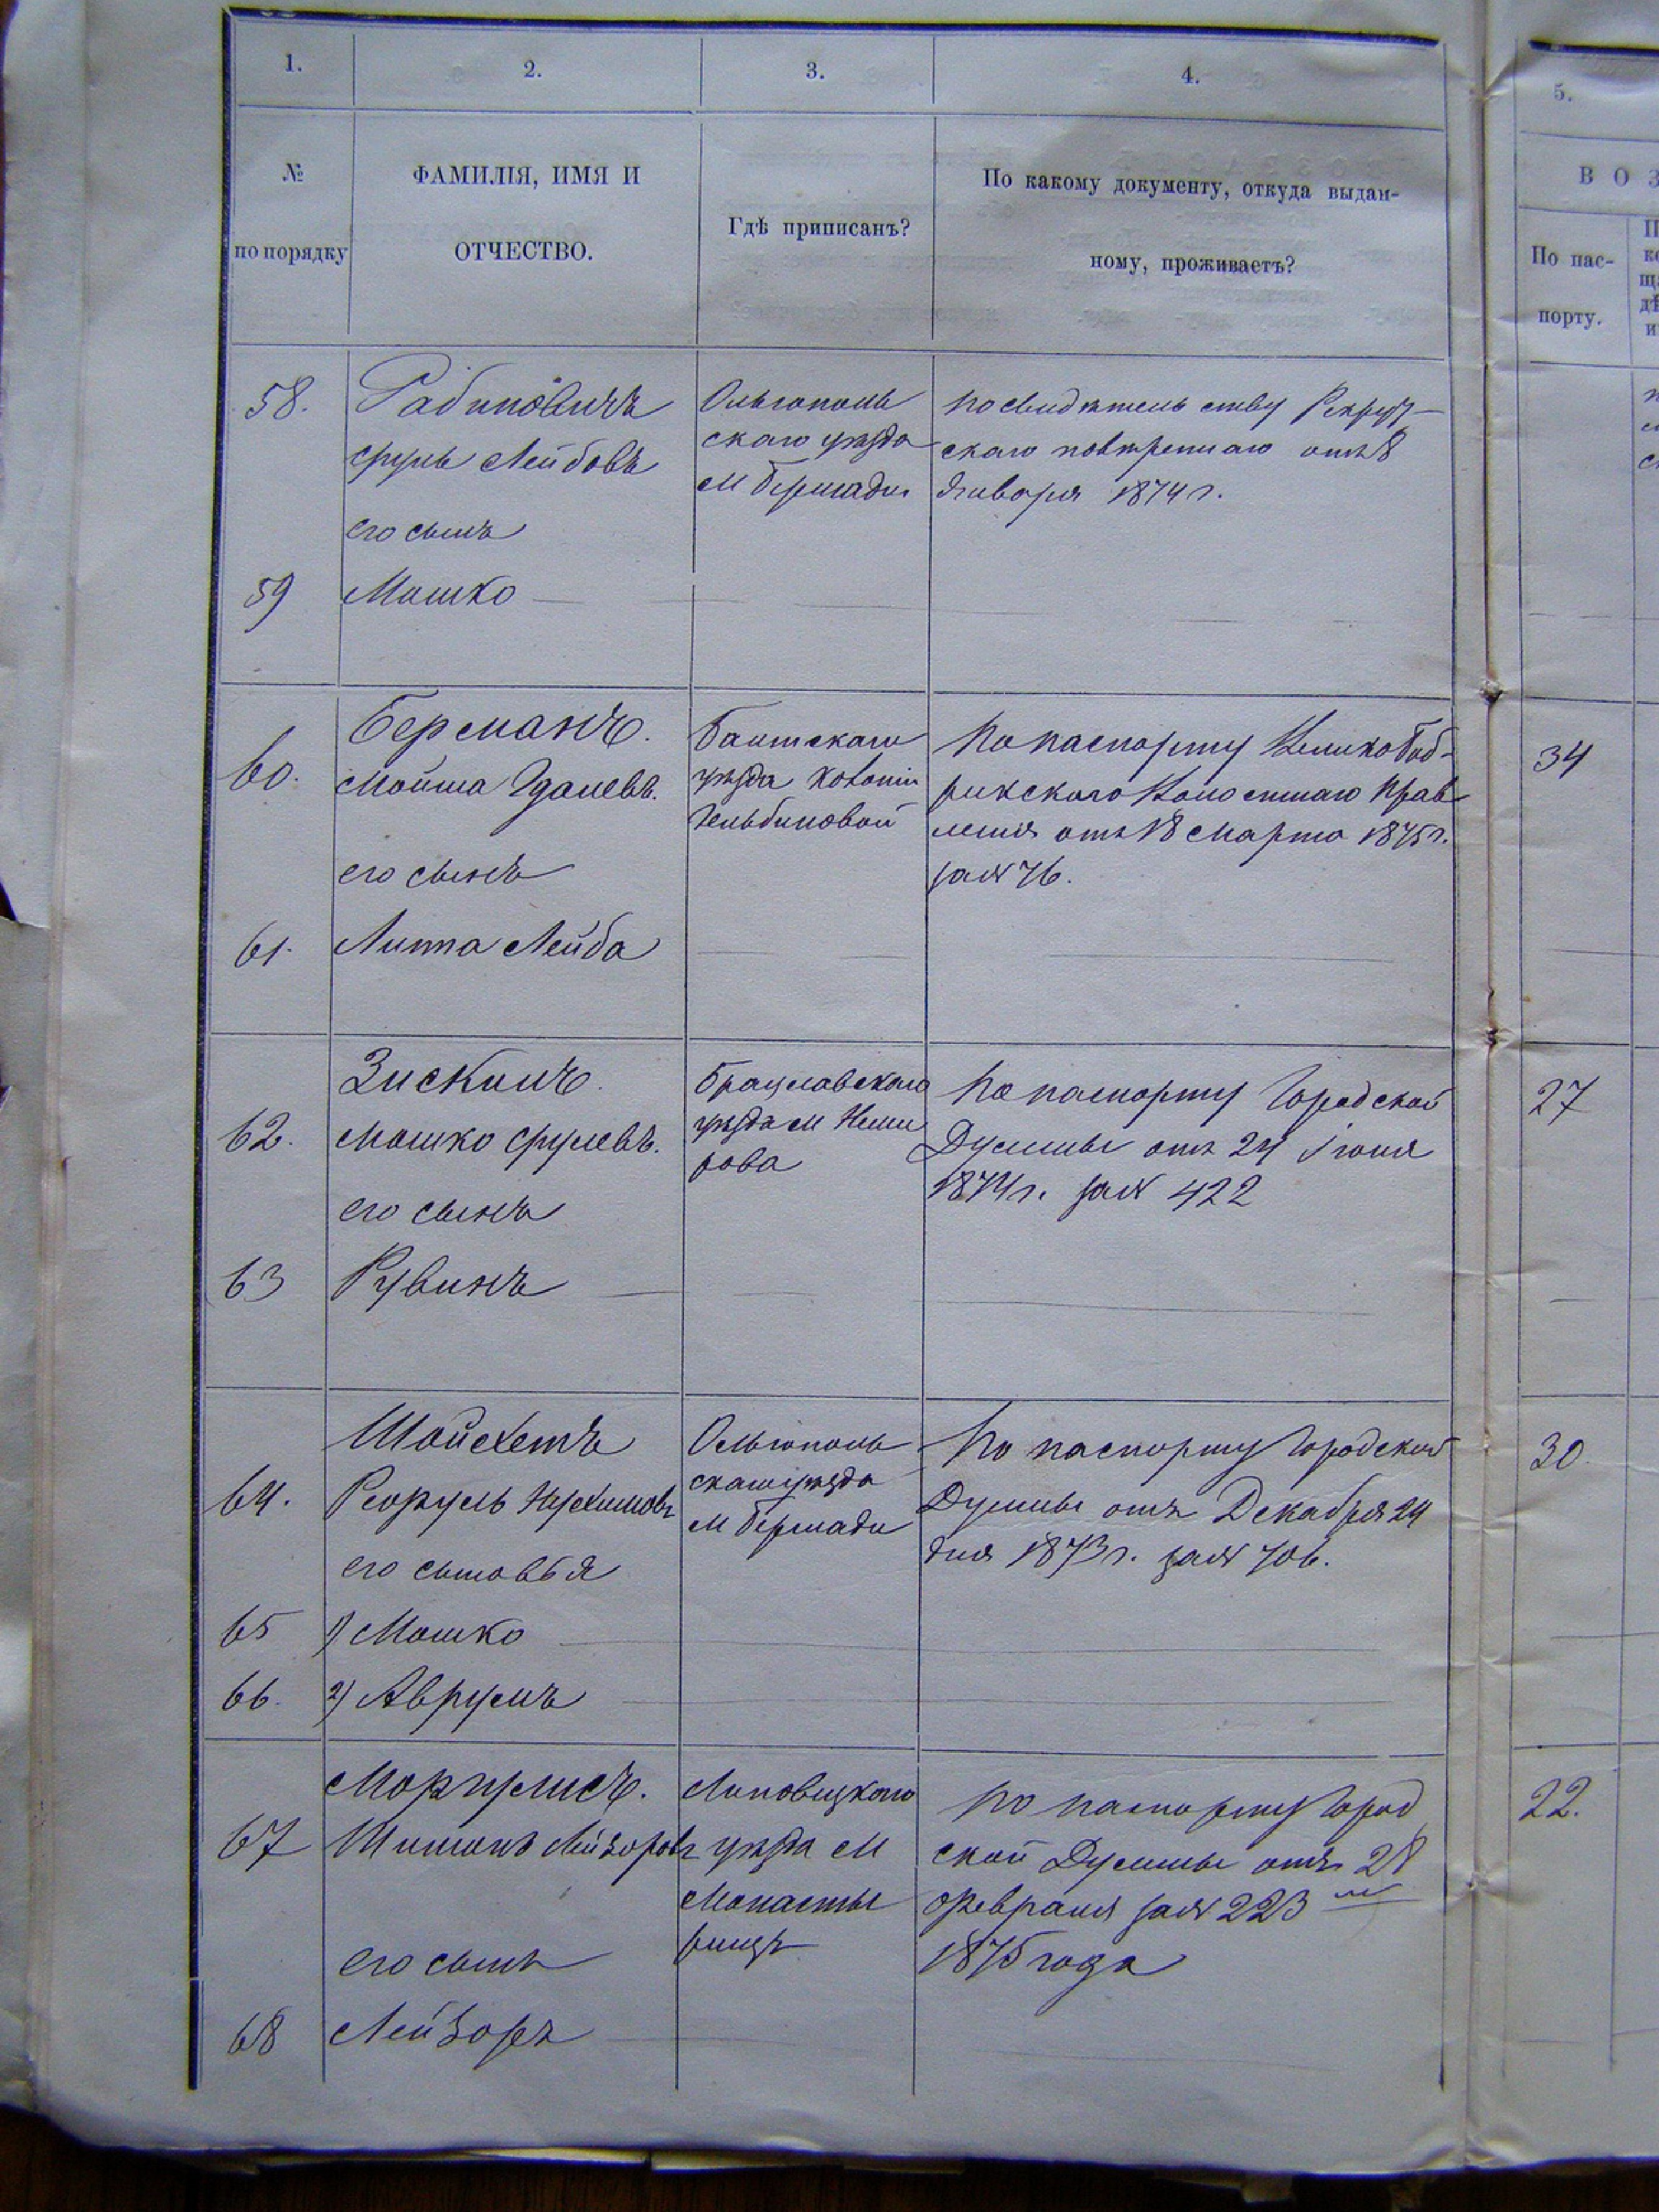 1.
2.
3.
4.
5.
№
по порядку
ФАМИЛІЯ, ИМЯ И
ОТЧЕСТВО.
Гдѣ приписанъ?
По какому документу, откуда выдан-
ному, проживаетъ?
ВОЗ
По пас-
порту.
58.
Рабиновичъ
Сруль Лейбовъ
его сынъ
Ольгополь
скаго уѣзда
м Бершади
по свидѣтельству Рекрут-
скаго
отъ 8
Января 1874 г.
59
Мошко
60.
Берманъ.
Мойша Гдалевъ.
его сынъ
Балтскаго
уѣзда колоніи
По паспорту
Волостнаго Прав
ленія отъ 18 Марта 1875 г.
за № 76.
34
61.
Липпа Лейба
62.
Зискинъ.
Мошко Срулевъ.
его сынъ
Брацлавскаго
уѣзда м Неми
рова
По паспорту Городской
Думы отъ 24 Іюня
1874 г. за № 422
27
63
Рувинъ
64.
Шойхетъ
его сыновья
Ольгополь
скаго уѣзда
м Бершади
По паспорту Городской
Думы отъ Декабря 24
дня 1873 г. за № 706.
30
65
1) Мошко
66.
2) Аврумъ
67
Моргулисъ.
Шимонъ Лейзоровъ
его сынъ
Липовецкаго
уѣзда м
Монасты
рищъ
По паспорту Город
ской Думы отъ 28
Февраля за № 223
1875 года
22.
68
Лейзоръ